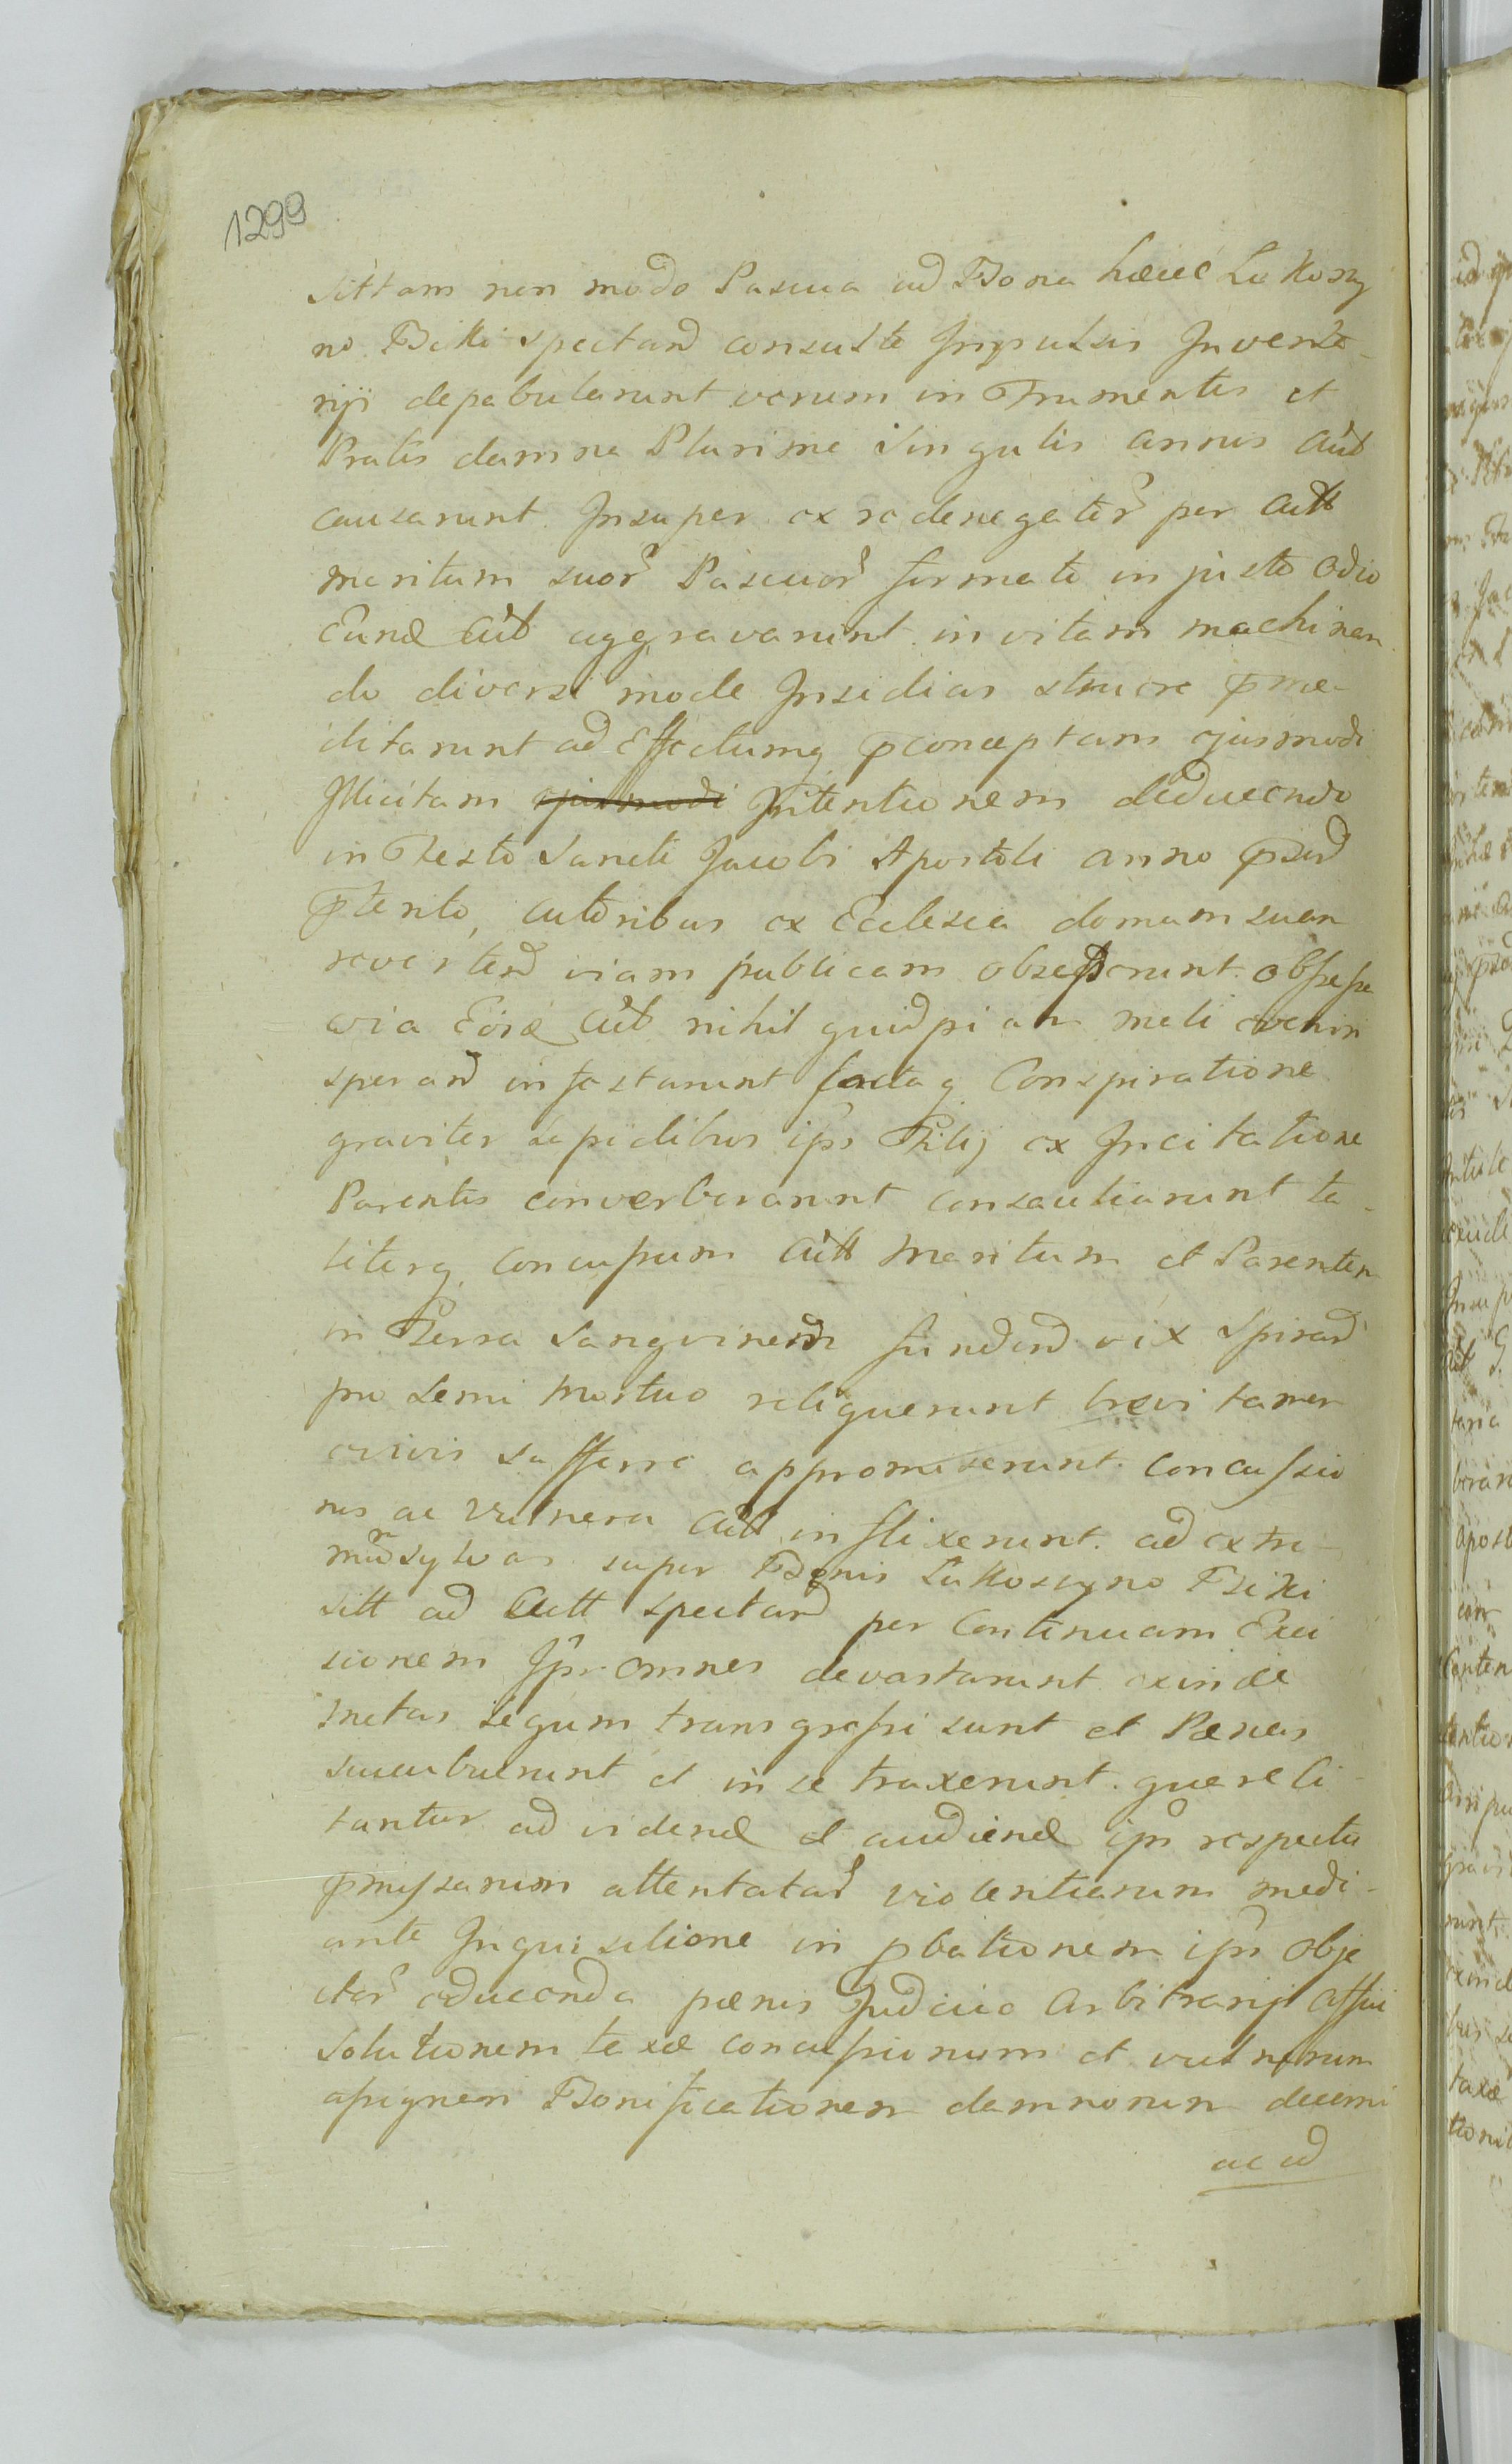 1299
sittam non modo Pascua ad Bona haecce Lakoszy
no Bikki spectand consulto Impulsis Invento-
rijs depabularunt verum in Frumentis et
Pratis damna Plurima singulis annis Autt
causarunt. Insuper ex re denegator per Autt
maritum suor Pascuor formato injusto Odio
Eund Autt aggravarunt in vitam machinan
do diversi mode Insidias struere pme-
ditarunt ad Effectumq pconceptam ejusmodi
Illicitam ejusmodi Intentionem deducendo
in Festo Sancti Jacobi Apostoli anno psnd
pterito, Autoribus ex Ecclesia domum suam
revertend viam publicam obsederunt. obsessa
via Eosd Autt nihil quidpiam mali eveniri
sperand infestarunt factaq Conspiratione
graviter Lapidibus ips Filij ex Incitatione
Parentis converberarunt consauciarunt ta-
literq concussum Autt Maritum et Parentem
in Terra Sangvinem fundend vix Spirand
pro Semi Mortuo reliquerunt brevi tamen
e vivis sufferre appromiserunt. Concussio
nes ac Vulnera Autt inflixerunt. ad extre-
mum Sylvas super Bonis Lakoszyno Bikki
sitt ad Autt spectand per Continuam Exci
sionem Ips Omnes devastarunt exinde
metas Legum transgressi sunt et Paenas
succubuerunt et in se traxerunt. quereli-
tantur ad vidend et audiend ips respectu
pmissarum attentatar violentiarum medi-
ante Inquisitione in pbationem ips Obje
ctor educenda paenis Judicio Arbitrarijs affici
solutionem taxae concussionum et vulnerum
assignari Bonificationem damnorum decerni
ac ad